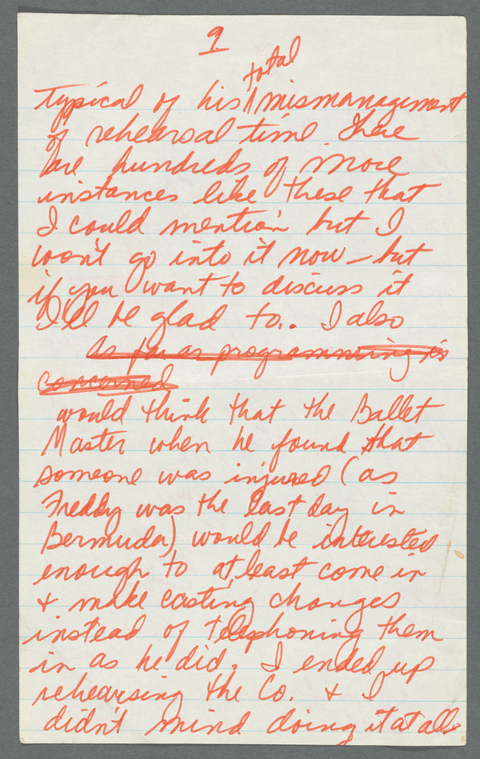 9.
total
typical of his mismanagement
of rehearsal time. There
are hundreds of more
instances like these that
I could mention but I
won't go into it now — but
if you want to discuss it
I'll be glad to.. I also
as far as programming is
concerned
would think that the Ballet
Master when he found that
someone was injured (as
Freddy was the last day in
Bermuda) would be interested
enough to at least come in
& make casting changes
instead of telephoning them
in as he did. I ended up
rehearsing the Co. & I
didn't mind doing it at all.